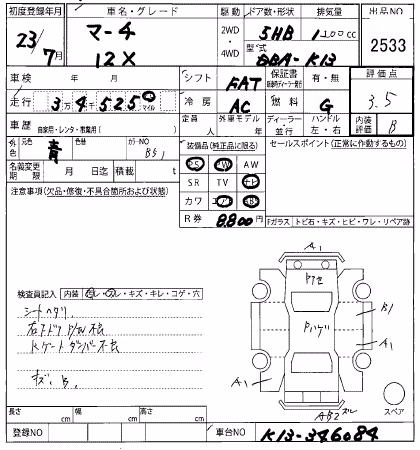 初度登録年月 車名・グレード 駆動 ドア数・形状 排気量 出品NO
23/7月 マーチ 12X 2WD・4WD 5HB 1200cc 2533
型式 DBA-K13
車検 年 月 シフト FAT 保証書 有・無 評価点
走行 3万4千525 マイル 冷房 AC 燃料 G 3.5
車歴 自家用・レンタ・事業用( ) 定員 人 外車モデル 年 ディーラー・並行 ハンドル 左・右 内装評価 B
外色 元色 青 色替 カラーNO B51
装備品(純正品に限る) セールスポイント(正常に作動するもの)
PS PW AW
SR TV ナビ
カワ エアB ABS
名義変更期限 月 日迄 積載 t
R券 8,800円
注意事項(欠品・修復・不具合箇所および状態)
Fガラス トビ石・キズ・ヒビ・ワレ・リペア跡
A1
Pアセ
Pハゲ
B1
A1
A1
AB2
スペア
検査員記入 内装 ヨゴレ・スレ・キズ・キレ・コゲ・穴
シートヘタリ
キズ、B、
長さ cm 幅 cm 高さ cm
登録NO 車台NO K13-346084